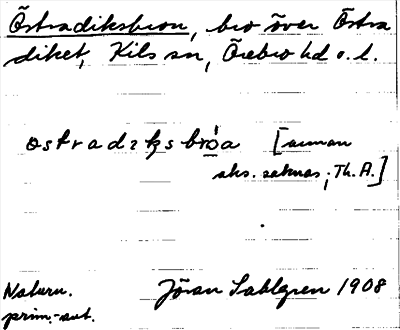 Östradiksbron, bro över Östra
diket, Kils sn, Örebro hd o. l.
ostradiksbróa [annan
aks. saknas; Th. A.]
Naturn.
prim.-aut.
Jöran Sahlgren 1908